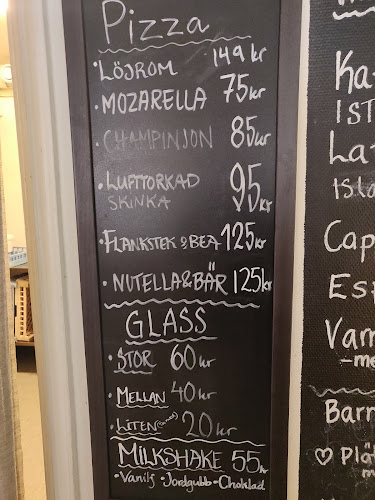 Pizza
• LÖJROM 149 kr
• MOZARELLA 75 kr
• CHAMPINJON 85 kr
• LUFTTORKAD 95 kr
SKINKA
• FLANKSTEK & BEA 125 kr
• NUTELLA & BÄR 125 kr
GLASS
• STOR 60 kr
• MELLAN 40 kr
• LITEN 20 kr
MILKSHAKE 55 kr
• Vanilj • Jordgubb • Choklad
Ka
IST
La
Ista
Cap
Esp
Varm
-me
Barn
♡ Plät